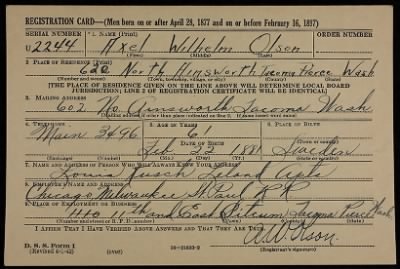 REGISTRATION CARD—(Men born on or after April 28, 1877 and on or before February 16, 1897)
SERIAL NUMBER 1. NAME (Print) ORDER NUMBER
U 2244 Axel Wilhelm Olson
(First) (Middle) (Last)
2. PLACE OF RESIDENCE
602 North Ainsworth Tacoma Pierce Wash
(Number and street) (Town, township, village, or city) (County) (State)
[THE PLACE OF RESIDENCE GIVEN ON THE LINE ABOVE WILL DETERMINE LOCAL BOARD
JURISDICTION; LINE 2 OF REGISTRATION CERTIFICATE WILL BE IDENTICAL]
3. MAILING ADDRESS
602 No. Ainsworth Tacoma Wash
(Mailing address if other than place indicated on line 2. If same insert word same)
4. TELEPHONE 5. AGE IN YEARS 6. PLACE OF BIRTH
Main 3496 61
DATE OF BIRTH
Feb 1881 Sweden
(Exchange) (Number) (Mo.) (Day) (Yr.) (State or country)
7. NAME AND ADDRESS OF PERSON WHO WILL ALWAYS KNOW YOUR ADDRESS
Leland Apts
8. EMPLOYER'S NAME AND ADDRESS
Chicago Milwaukee St. Paul R R
9. PLACE OF EMPLOYMENT OR BUSINESS
and East Tacoma Pierce Wash
(Number and street or R. F. D. number) (Town) (County) (State)
I AFFIRM THAT I HAVE VERIFIED ABOVE ANSWERS AND THAT THEY ARE TRUE.
D. S. S. Form 1
(Revised 4-1-42) (over) A.W. Olson.
(Registrant's signature)